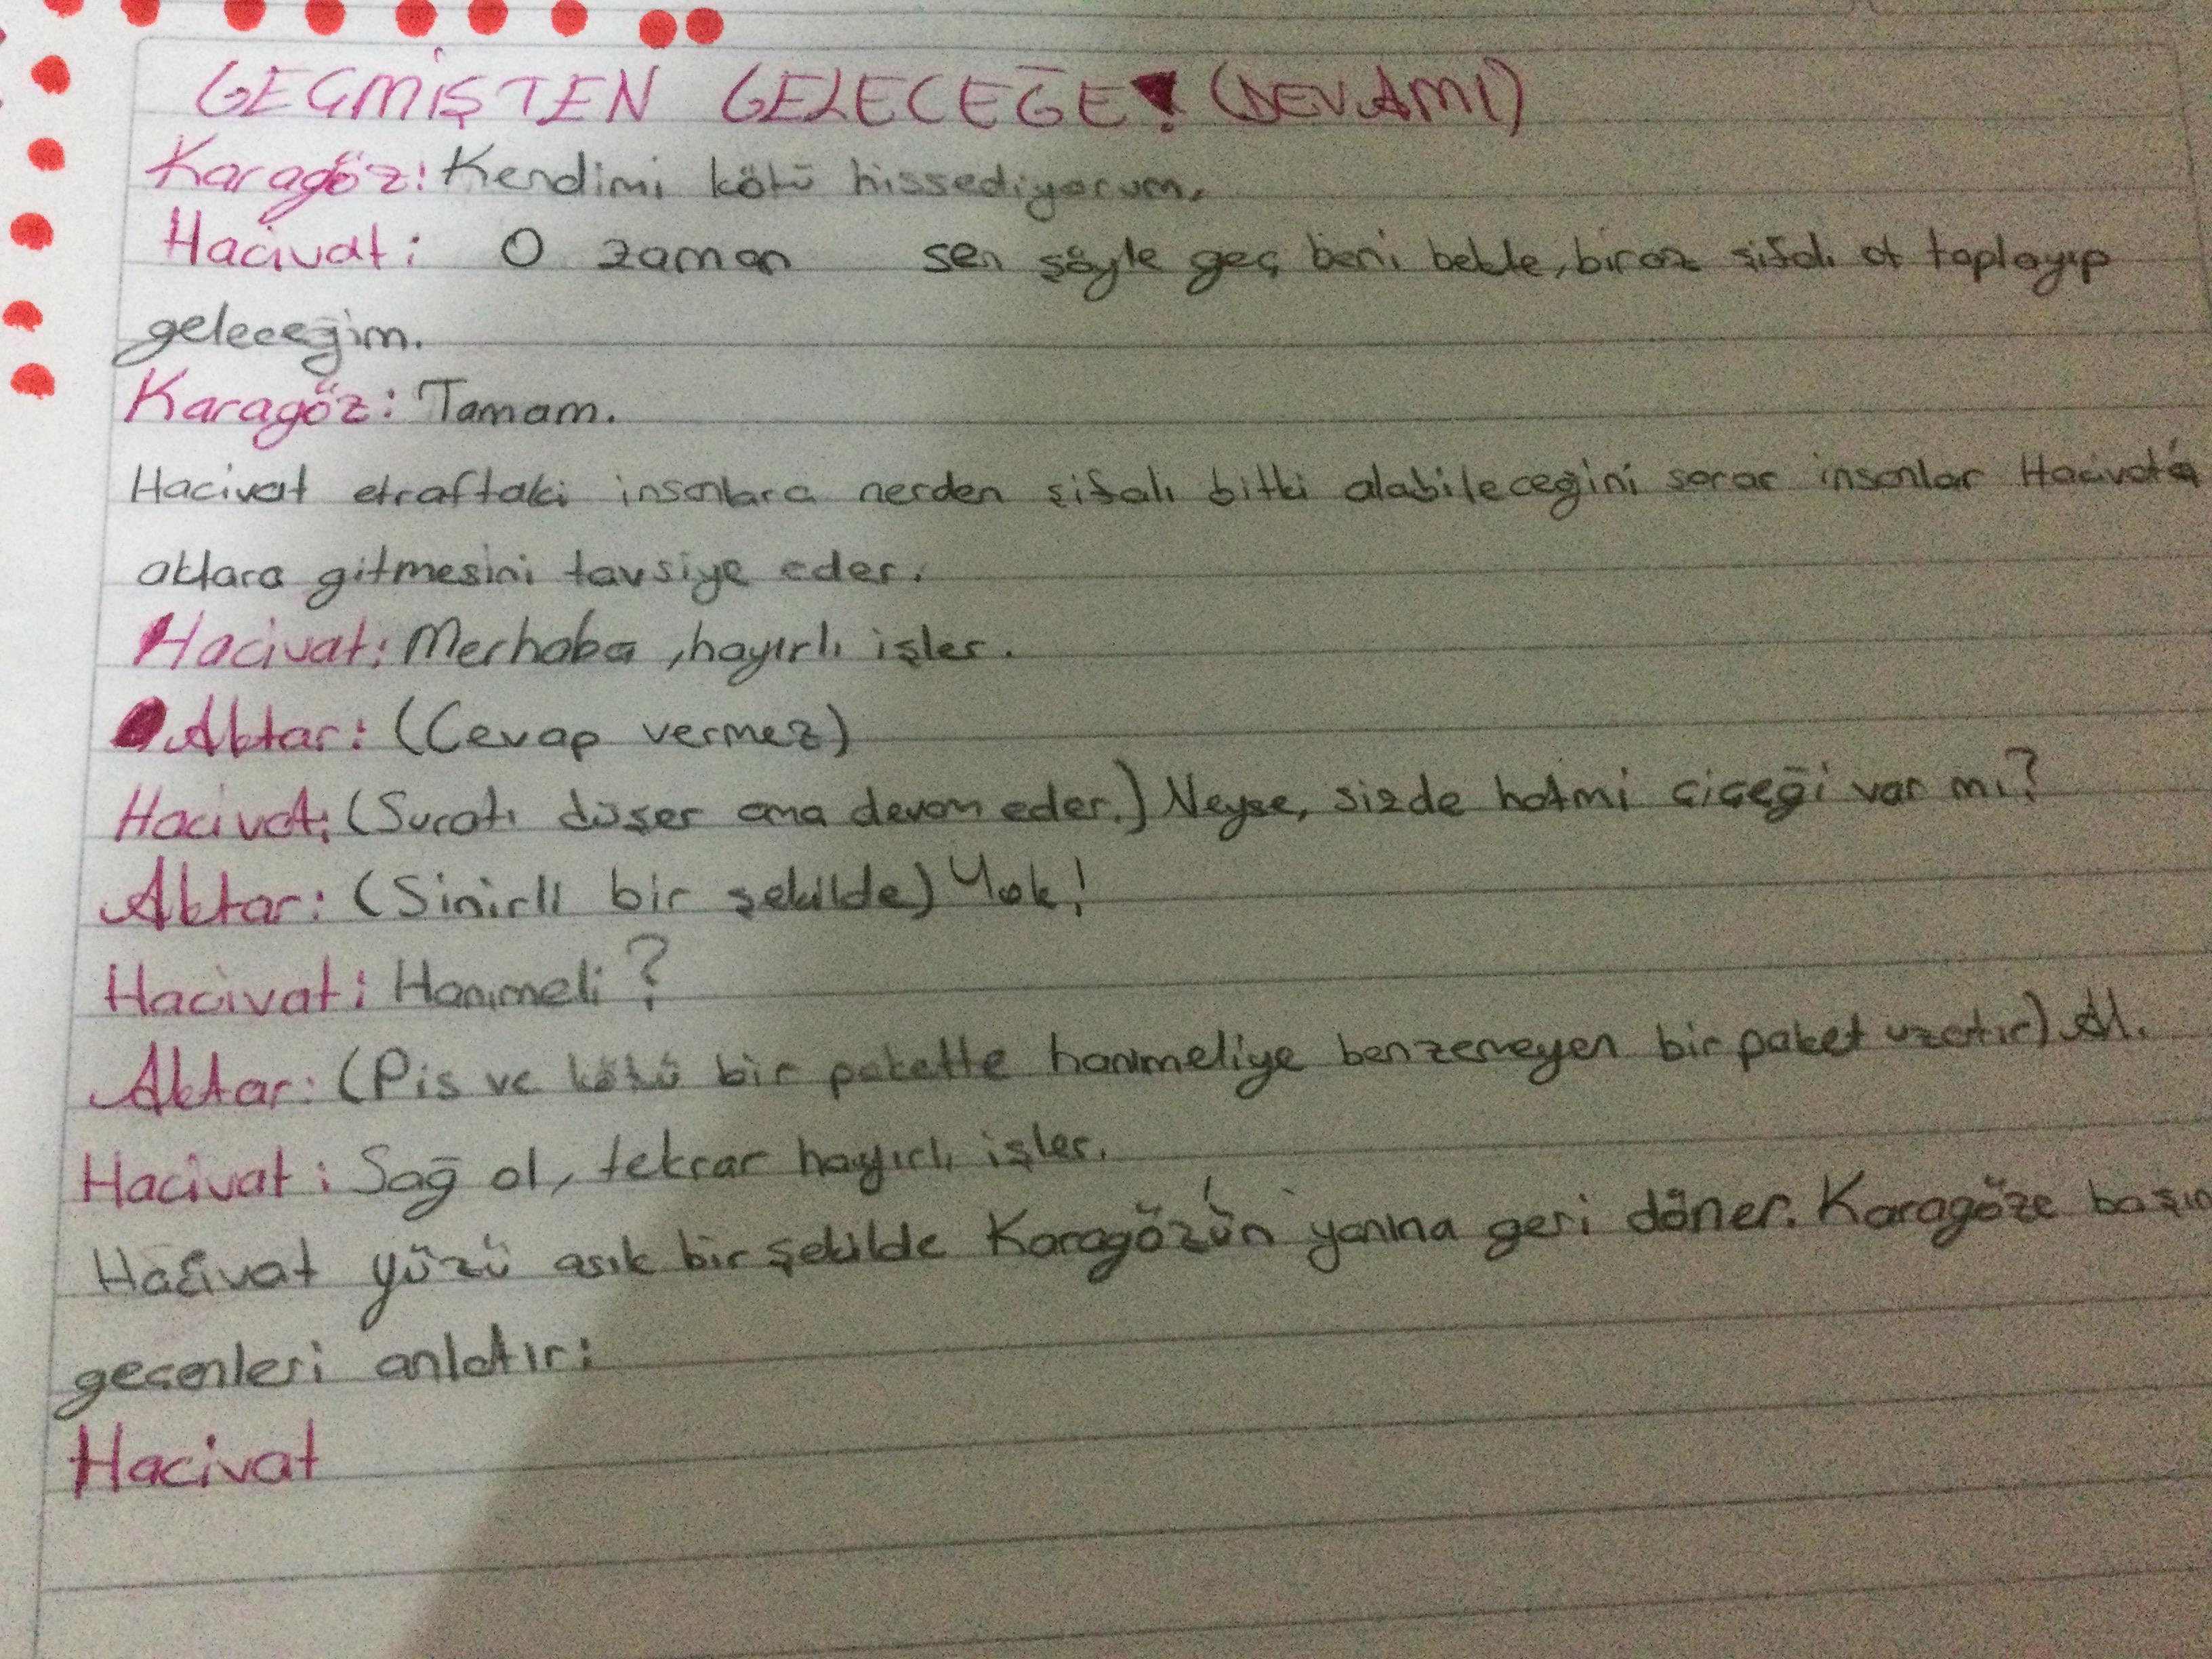 GEÇMİŞTEN GELECEĞE! (DEVAMI)
Karagöz: Kendimi kötü hissediyorum.
Hacivat: O zaman sen şöyle geç beni bekle, biraz şifalı ot toplayıp
geleceğim.
Karagöz: Tamam.
Hacivat etraftaki insanlara nerden şifalı bitki alabileceğini sorar insanlar Hacivat'a
aktara gitmesini tavsiye eder.
Hacivat: Merhaba, hayırlı işler.
Aktar: (Cevap vermez)
Hacivat: (Suratı düşer ama devam eder.) Neyse, sizde hatmi çiçeği var mı?
Aktar: (Sinirli bir şekilde) Yok!
Hacivat: Hanımeli?
Aktar: (Pis ve kötü bir pakette hanımeliye benzemeyen bir paket uzatır) Al.
Hacivat: Sağ ol, tekrar hayırlı işler.
Hacivat yüzü asık bir şekilde Karagöz'ün yanına geri döner. Karagöze başın
geçenleri anlatır:
Hacivat